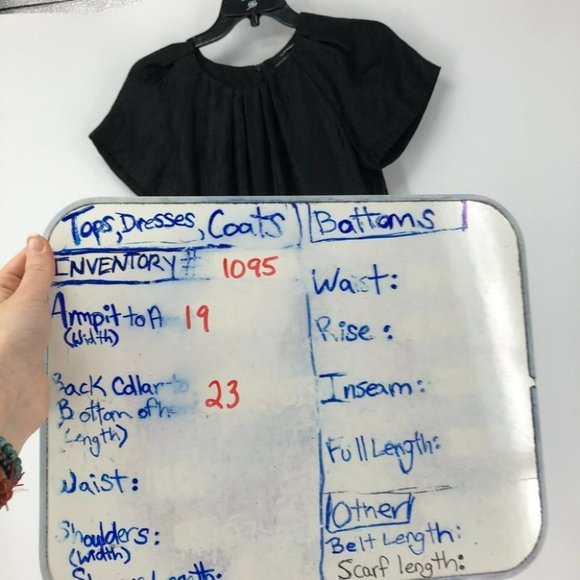 Tops, Dresses, Coats
INVENTORY # 1095
Armpit to A 19
(width)
Back Collar to 23
Bottom of he
(Length)
Waist:
Shoulders:
(width)
Length:
Bottoms
Waist:
Rise:
Inseam:
Full Length:
Other
Belt Length:
Scarf length: